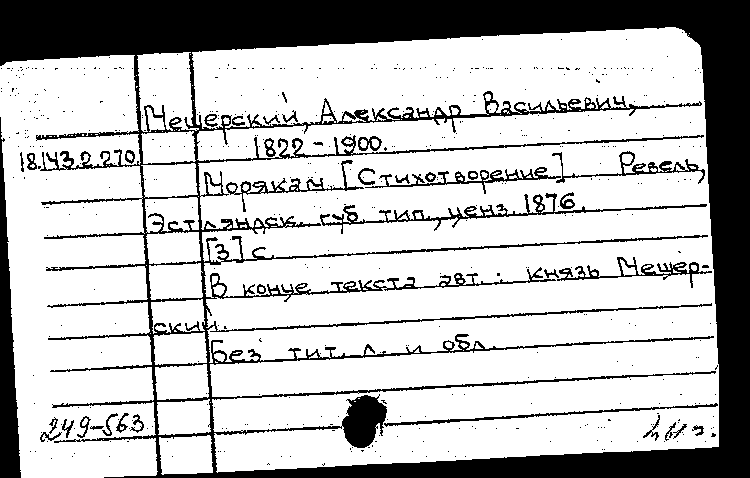 Мещерский, Александр Васильевич,
1822-1900.
18.143.2.270.
Морякам [Стихотворение]. Ревель,
Эстляндск. губ. тип., ценз. 1876.
[3] с.
В конце текста авт.: князь Мещер-
ский.
Без тит. л. и обл.
249-563